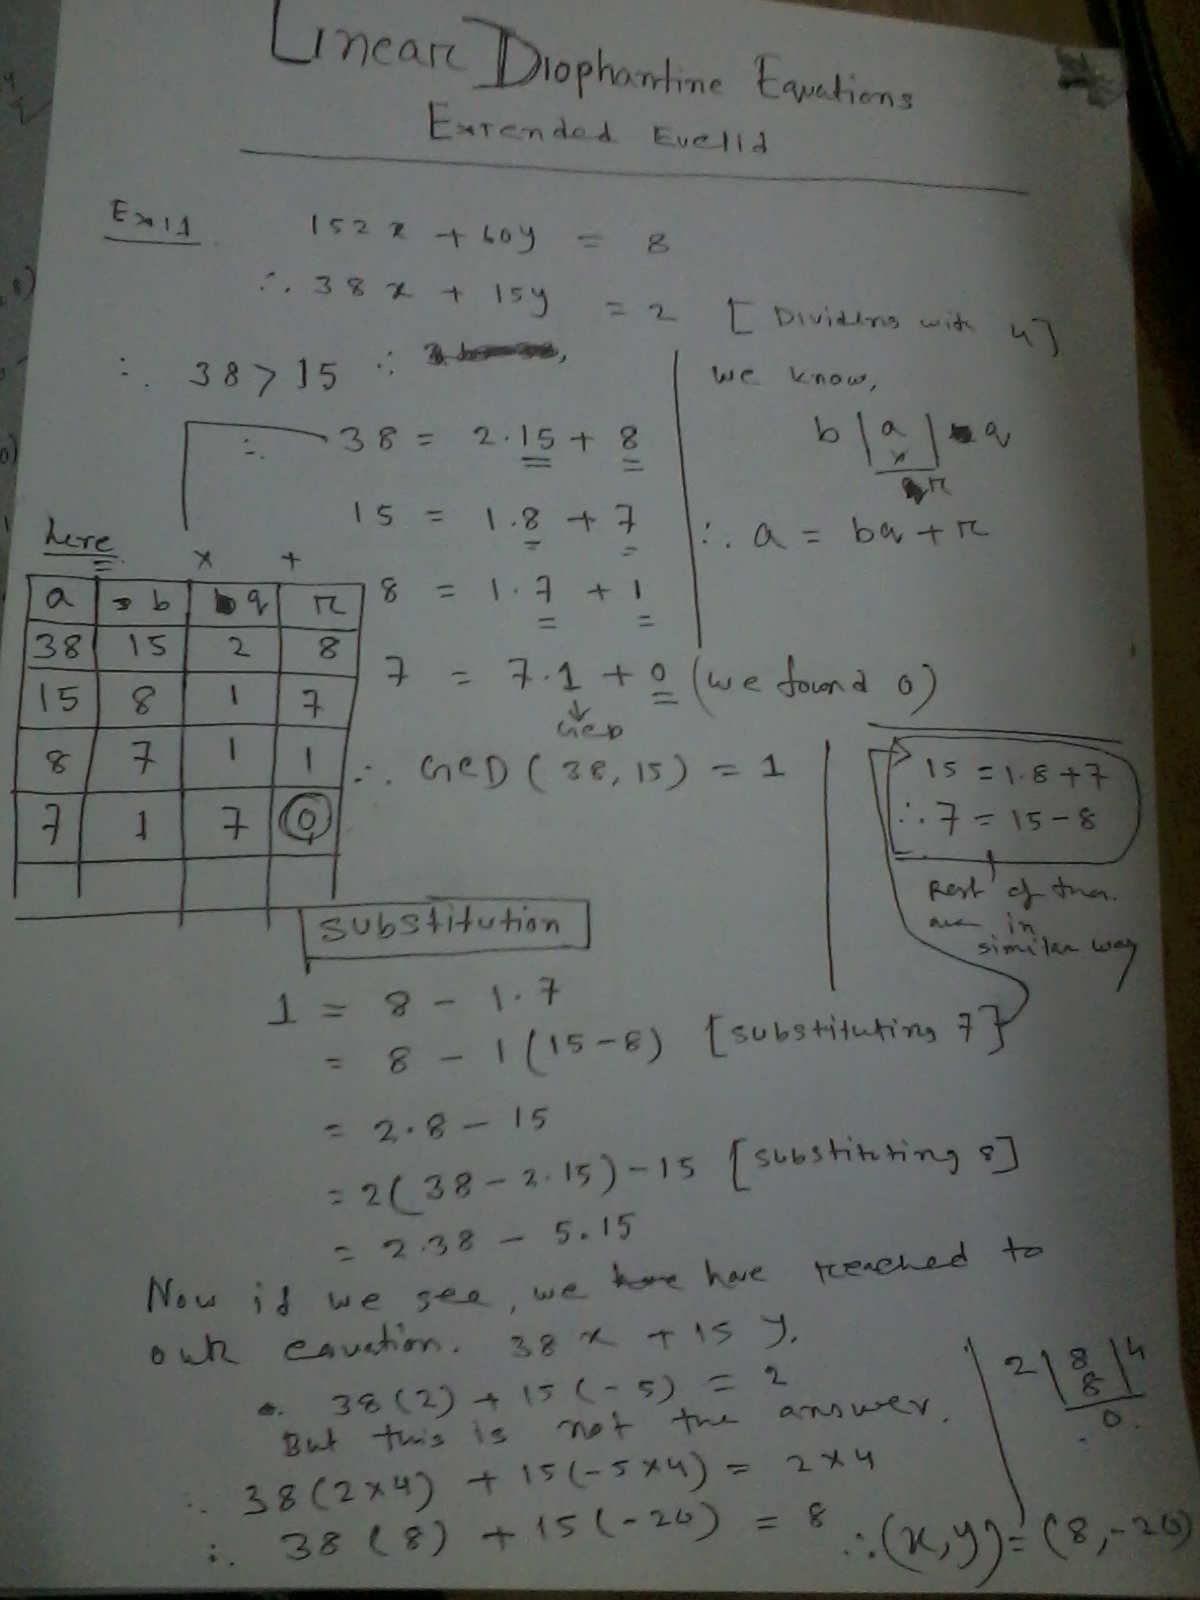 Linear Diophantine Equations
Extended Euclid
Ex:1 152x + 60y = 8
∴ 38x + 15y = 2 [Dividing with 4]
∴ 38 > 15 ∴
we know,
b | a | q
r
∴ a = bq + r
∴ 38 = 2.15 + 8
15 = 1.8 + 7
8 = 1.7 + 1
7 = 7.1 + 0 (we found 0)
↓
GCD
∴ GCD (38, 15) = 1
here
= x +
a b q r
38 15 2 8
15 8 1 7
8 7 1 1
7 1 7 0
15 = 1.8 + 7
∴ 7 = 15 - 8
Rest of them
are in
similar way
Substitution
1 = 8 - 1.7
= 8 - 1(15-8) [substituting 7]
= 2.8 - 15
= 2(38 - 2.15) - 15 [substituting 8]
= 2.38 - 5.15
Now if we see, we have reached to
our equation. 38x + 15y.
38(2) + 15(-5) = 2
But this is not the answer.
∴ 38(2x4) + 15(-5x4) = 2x4
∴ 38(8) + 15(-20) = 8 ∴ (x,y) = (8,-20)
2 | 8 | 4
8
0